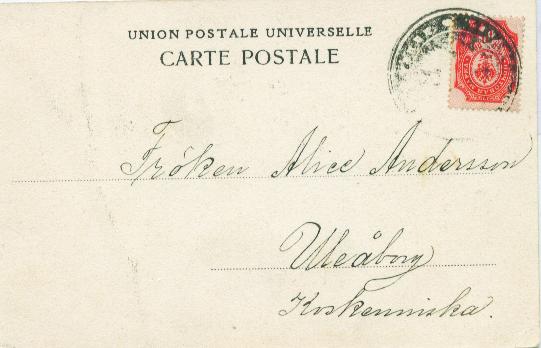 UNION POSTALE UNIVERSELLE
CARTE POSTALE
Fröken Alice Andersson
Uleåborg
Koskenniska.